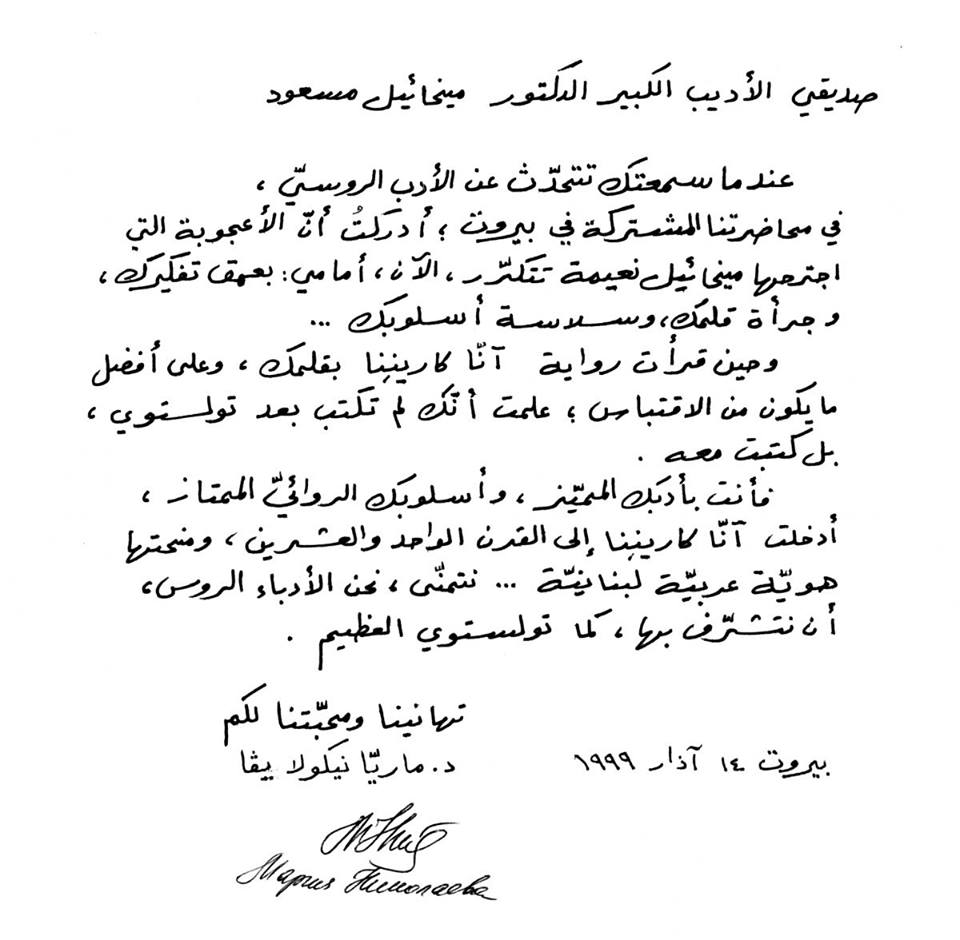 صديقي الأديب الكبير الدكتور ميخائيل مسعود
عندما سمعتك تتحدّث عن الأدب الروسيّ ،
في محاضرتنا المشتركة في بيروت ؛ أدركتُ أنّ الأعجوبة التي
اجترحها ميخائيل نعيمة تتكرّر ، الآن ، أمامي : بعمق تفكيرك ،
وجرأة قلمك، وسلاسة أسلوبك ...
وحين قرأت رواية آنّا كارينِنا بقلمك ، وعلى أفضل
ما يكون من الاقتباس ؛ علمت أنّك لم تكتب بعد تولستوي ،
بل كتبت معه .
فأنت بأدبك المميّز ، وأسلوبك الروائيّ الممتاز ،
أدخلت آنّا كارينِنا إلى القرن الواحد والعشرين ، ومنحتها
هويّة عربيّة لبنانيّة ... نتمنّى ، نحن الأدباء الروس،
أن نتشرّف بها ، كما تولستوي العظيم .
تهانينا ومحبّتنا لكم
بيروت ١٤ آذار ١٩٩٩ د. ماريّا نيكولا ييڤا
Мария Николаева